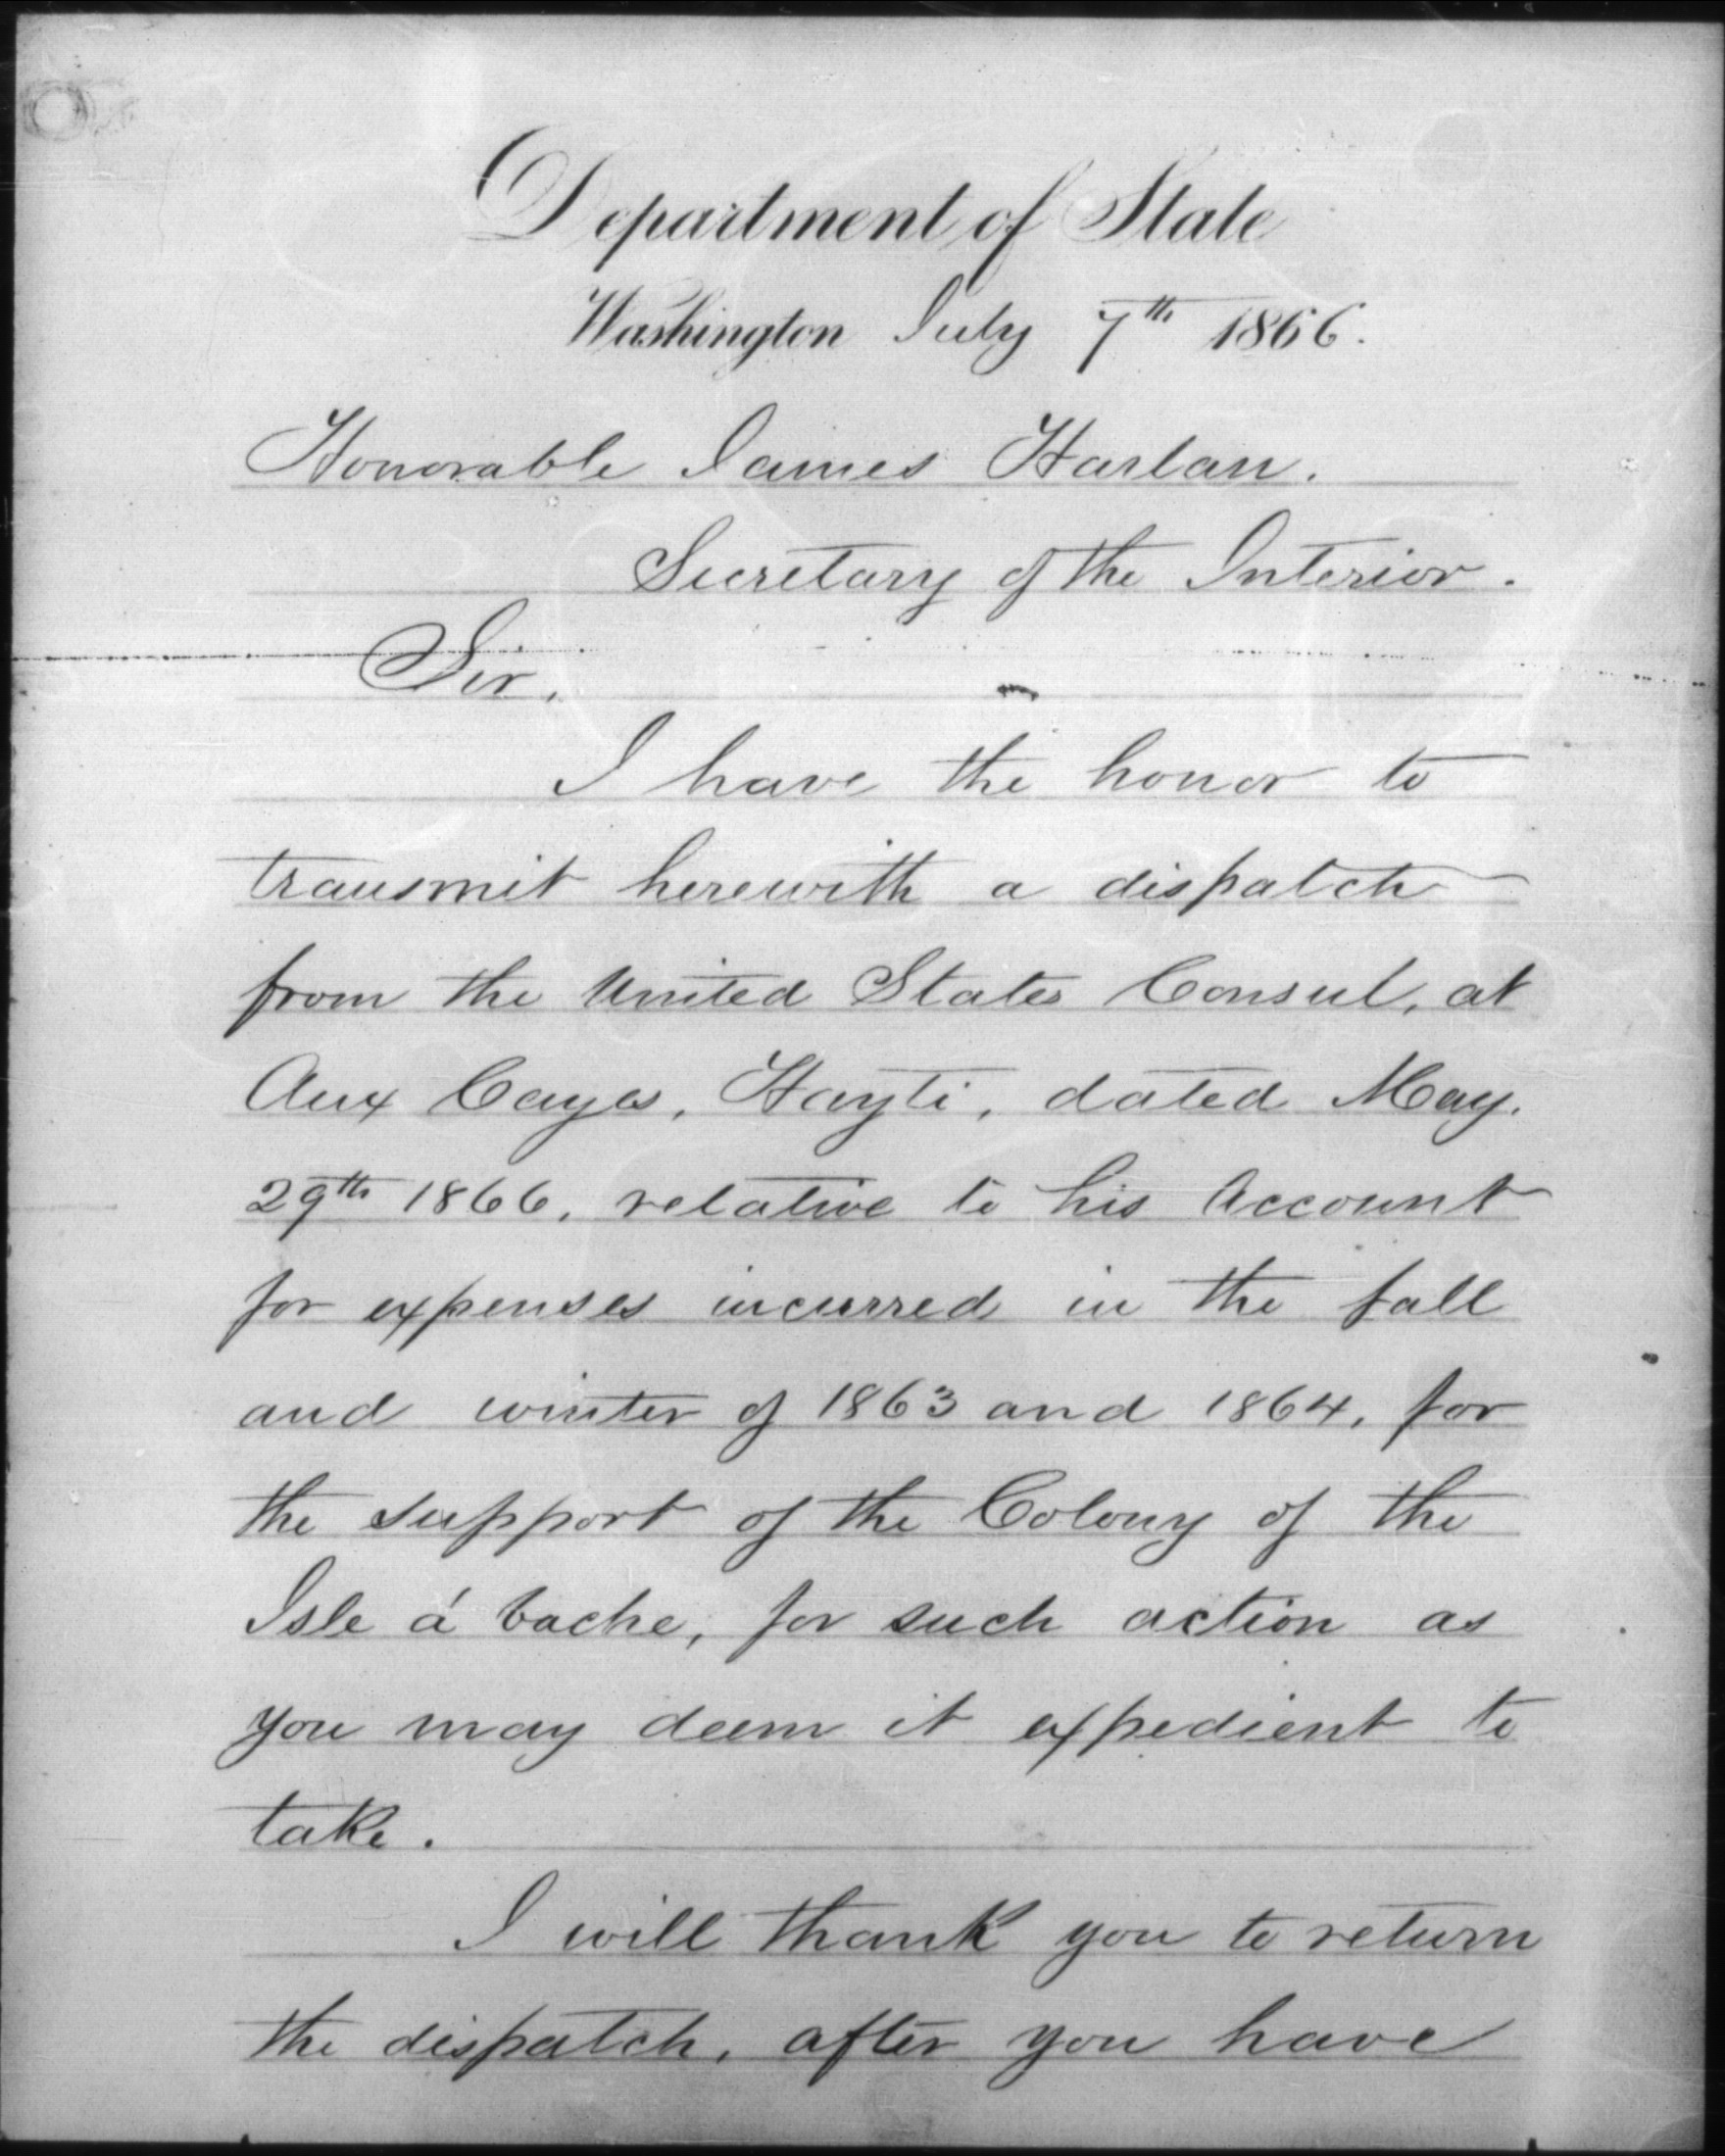 Department of State
Washington July 7th 1866.
Honorable James Harlan.
Secretary of the Interior.
Sir,
I have the honor to
transmit herewith a dispatch
from the United States Consul, at
Aux Cayes, Hayti, dated May.
29th 1866, relative to his Account
for expenses incurred in the fall
and winter of 1863 and 1864, for
the support of the Colony of the
Isle á Vache, for such action as
you may deem it expedient to
take.
I will thank you to return
the dispatch, after you have